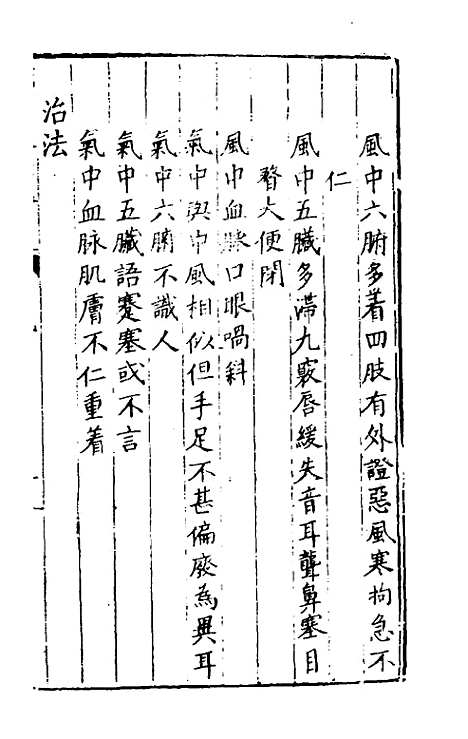 風中六腑多着四肢有外證惡風寒拘急不
仁
風中五臟多滯九竅唇緩失音耳聾鼻塞目
瞀大便閉
風中血脉口眼喎斜
氣中與中風相似但手足不甚偏廢為異耳
氣中六腑不識人
氣中五臟語蹇塞或不言
氣中血脉肌膚不仁重着
治法